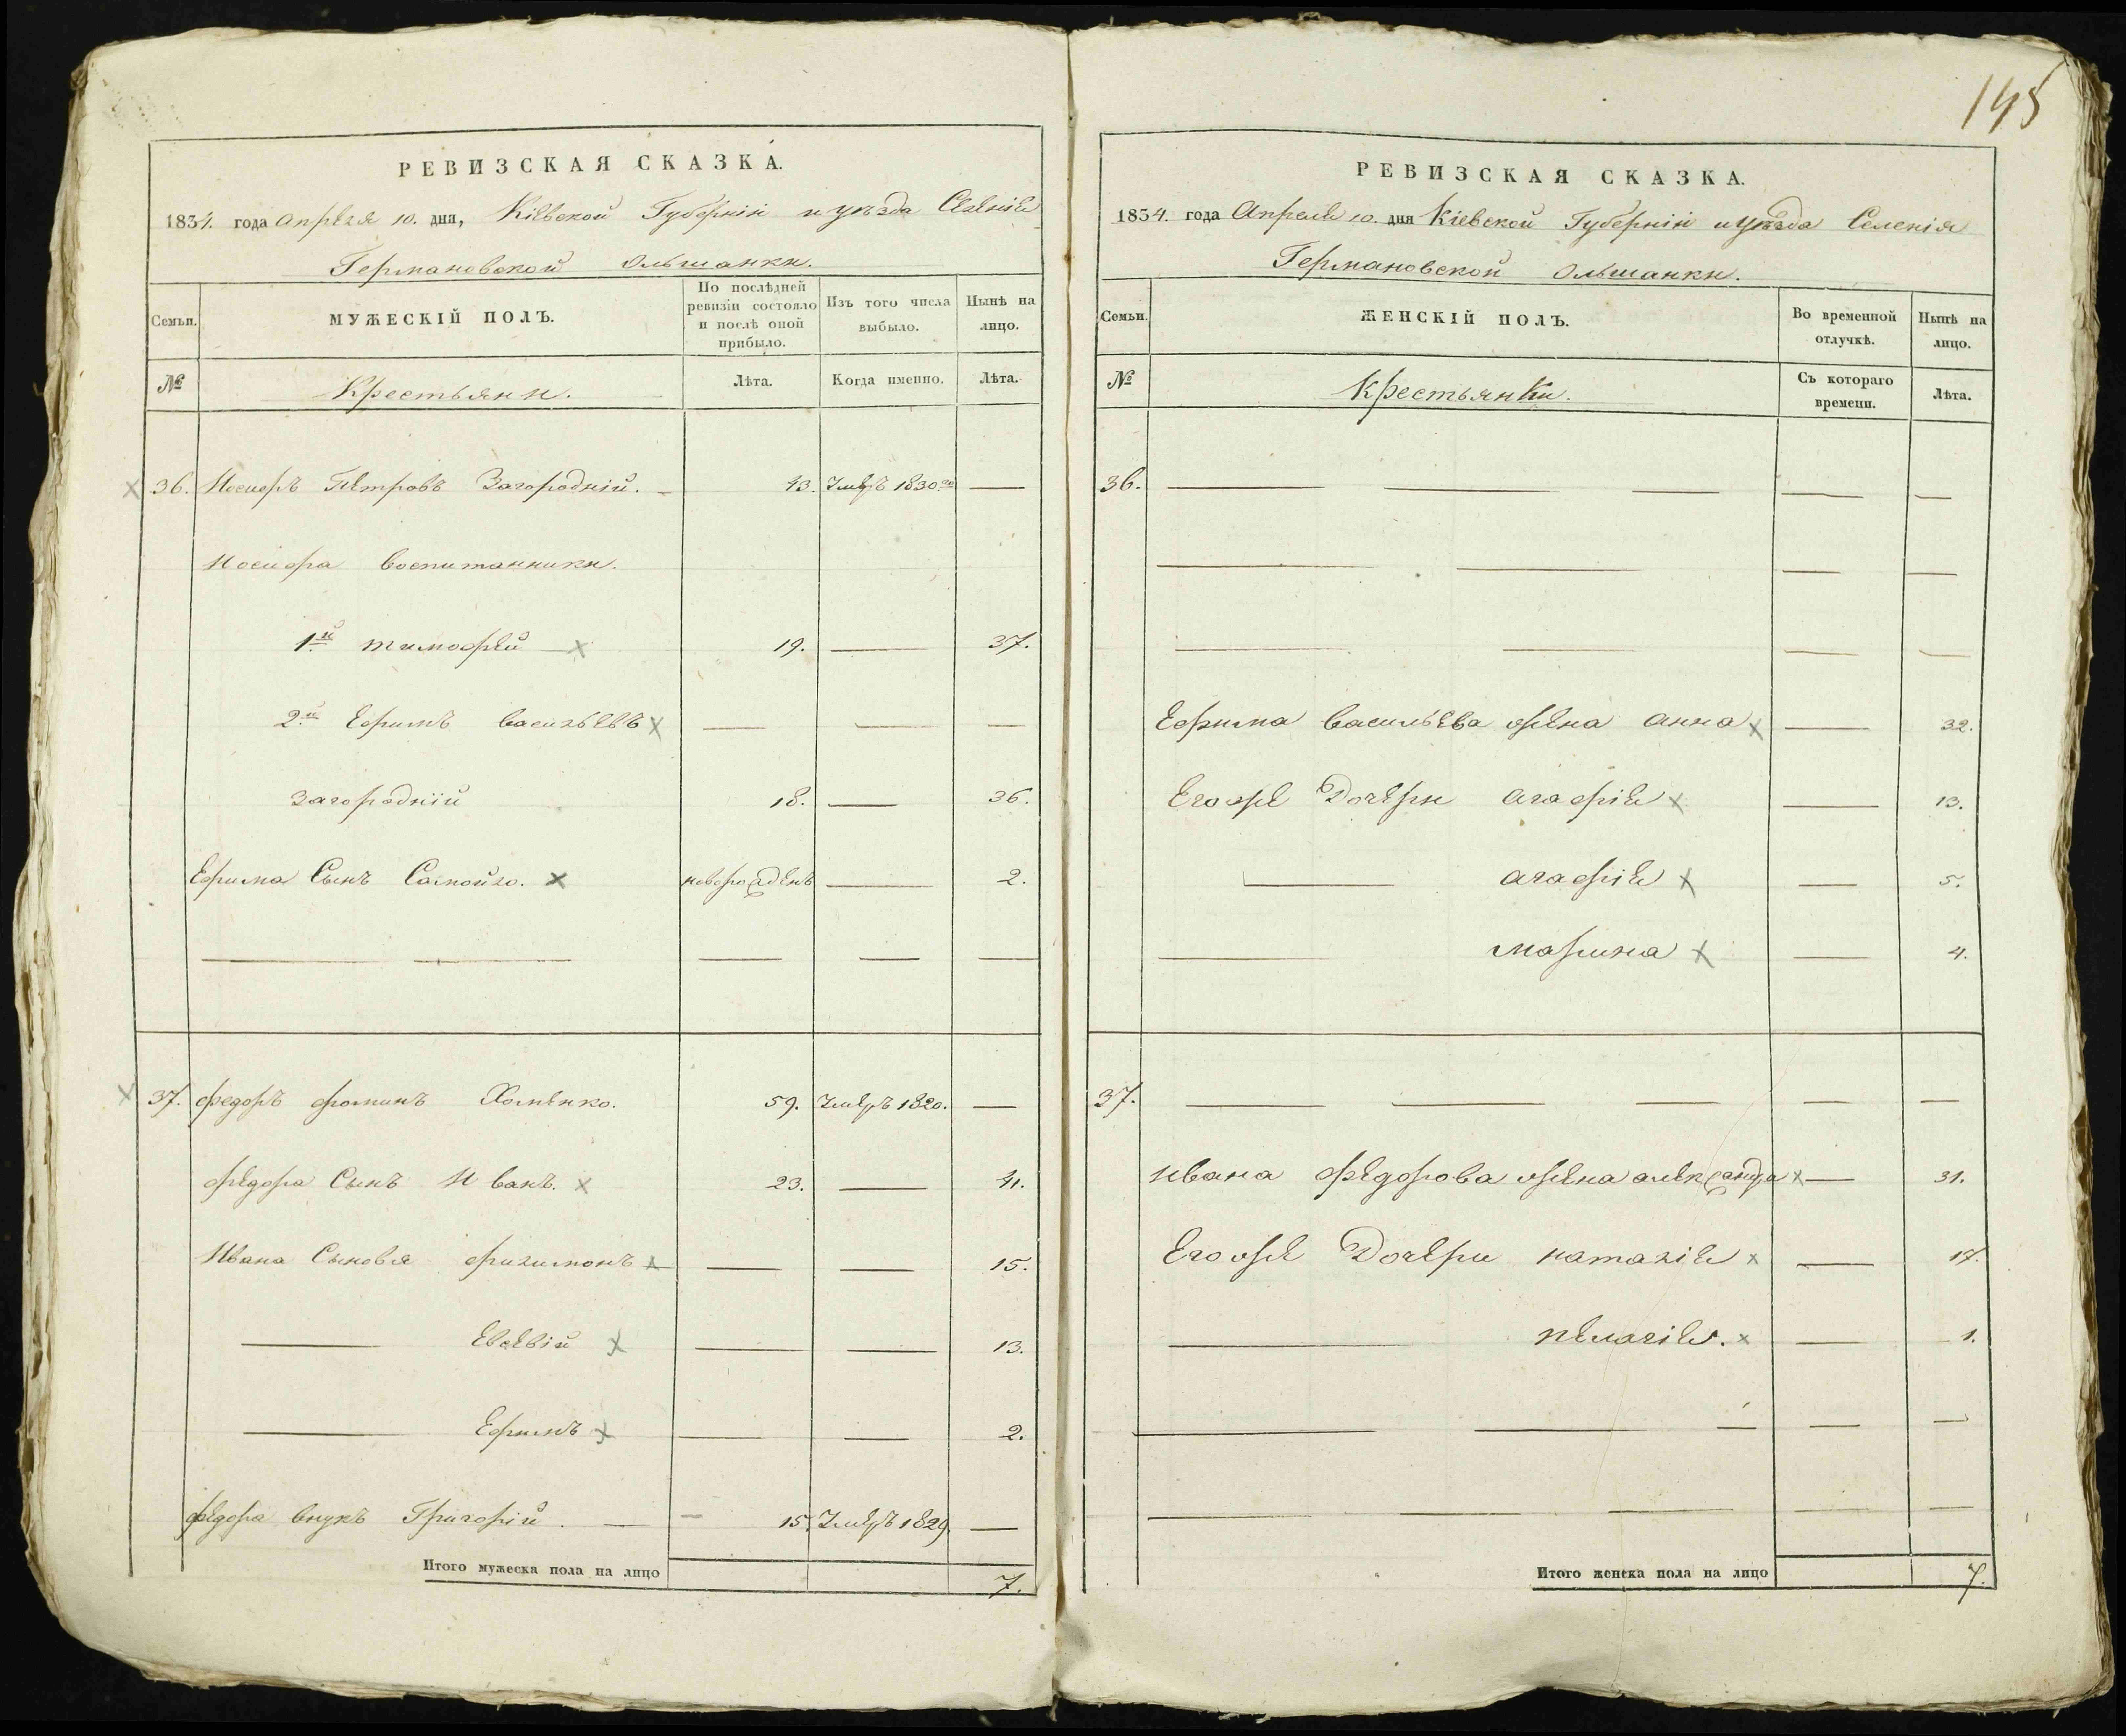 145
РЕВИЗСКАЯ СКАЗКА.
1834. года Апреля 10. дня, Кіевской Губерніи и уѣзда Селенія
Германовской Ольшанки.
Семьи. МУЖЕСКІЙ ПОЛЪ. По послѣдней ревизіи состояло и послѣ оной прибыло. Изъ того числа выбыло. Нынѣ на лицо.
№ Крестьяни. Лѣта. Когда именно. Лѣта.
36. Иосифъ Петровъ Загородній. 43. Умеръ 1830.го
Иосифа воспитанники.
1й Тимофей 19. 37.
2й Ефимъ Васильевъ
Загородній 18. 36.
Ефима Сынъ Самойло. новорожденъ 2.
37. Федоръ Фоминъ Хоменко. 59. Умеръ 1820.
Федора Сынъ Иванъ. 23. 41.
Ивана Сыновя Филимонъ 15.
Евсевій 13.
Ефимъ 2.
Федора внукъ Григорій. 15. Умеръ 1829.
Итого мужеска пола на лицо 7.
РЕВИЗСКАЯ СКАЗКА.
1834. года Апреля 10. дня Кіевской Губерніи и уѣзда Селенія
Германовской Ольшанки.
Семьи. ЖЕНСКІЙ ПОЛЪ. Во временной отлучкѣ. Нынѣ на лицо.
№ Крестьянки. Съ котораго времени. Лѣта.
36.
Ефима Васильева жена Анна 32.
Его же Дочери Агафія 13.
Агафія 5.
Марина 4.
37.
Ивана Федорова жена Александра 31.
Его же Дочери Наталія 17.
Пелагія. 1.
Итого женска пола на лицо 7.